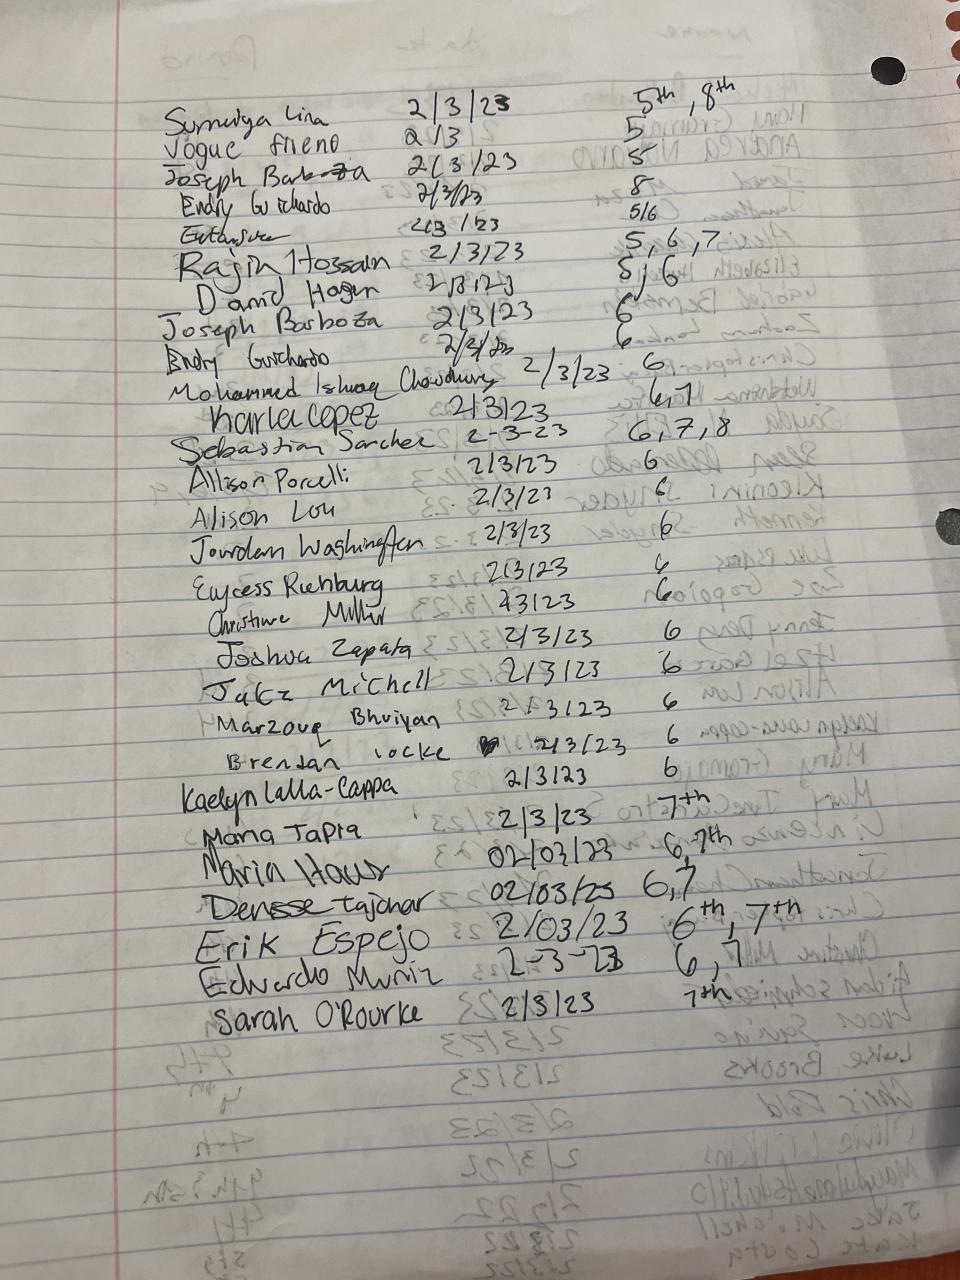 Lina 2/3/23 5th, 8th
Vogue 2/3 5
Joseph Barboza 2/3/23 5
Endry Guichardo 2/3/23 8
2/3/23 5/6
Rajin Hossain 2/3/23 5, 6, 7
David Hagen 2/3/23 5, 6
Joseph Barboza 2/3/23 6
Endry Guichardo 2/3/23 6
Mohammed Ishraq Chowdhury 2/3/23 6
Karla Lopez 2/3/23 6,7
Sebastian Sanchez 2-3-23 6, 7, 8
Allison Porcelli 2/3/23 6
Alison Lou 2/3/23 6
Jourdan Washington 2/3/23 6
Richburg 2/3/23 6
Christine Miller 2/3/23 6
Joshua Zapata 2/3/23 6
Jake Mitchell 2/3/23 6
Marzouq Bhuiyan 2/3/23 6
Brendan Locke 2/3/23 6
Kaelyn Lalla-Cappa 2/3/23 6
Maria Tapia 2/3/23 7th
Maria 02/03/23 6,7th
02/03/23 6,7
Erik Espejo 2/03/23 6th, 7th
Eduardo Muniz 2-3-23 6, 7
Sarah O'Rourke 2/3/23 7th